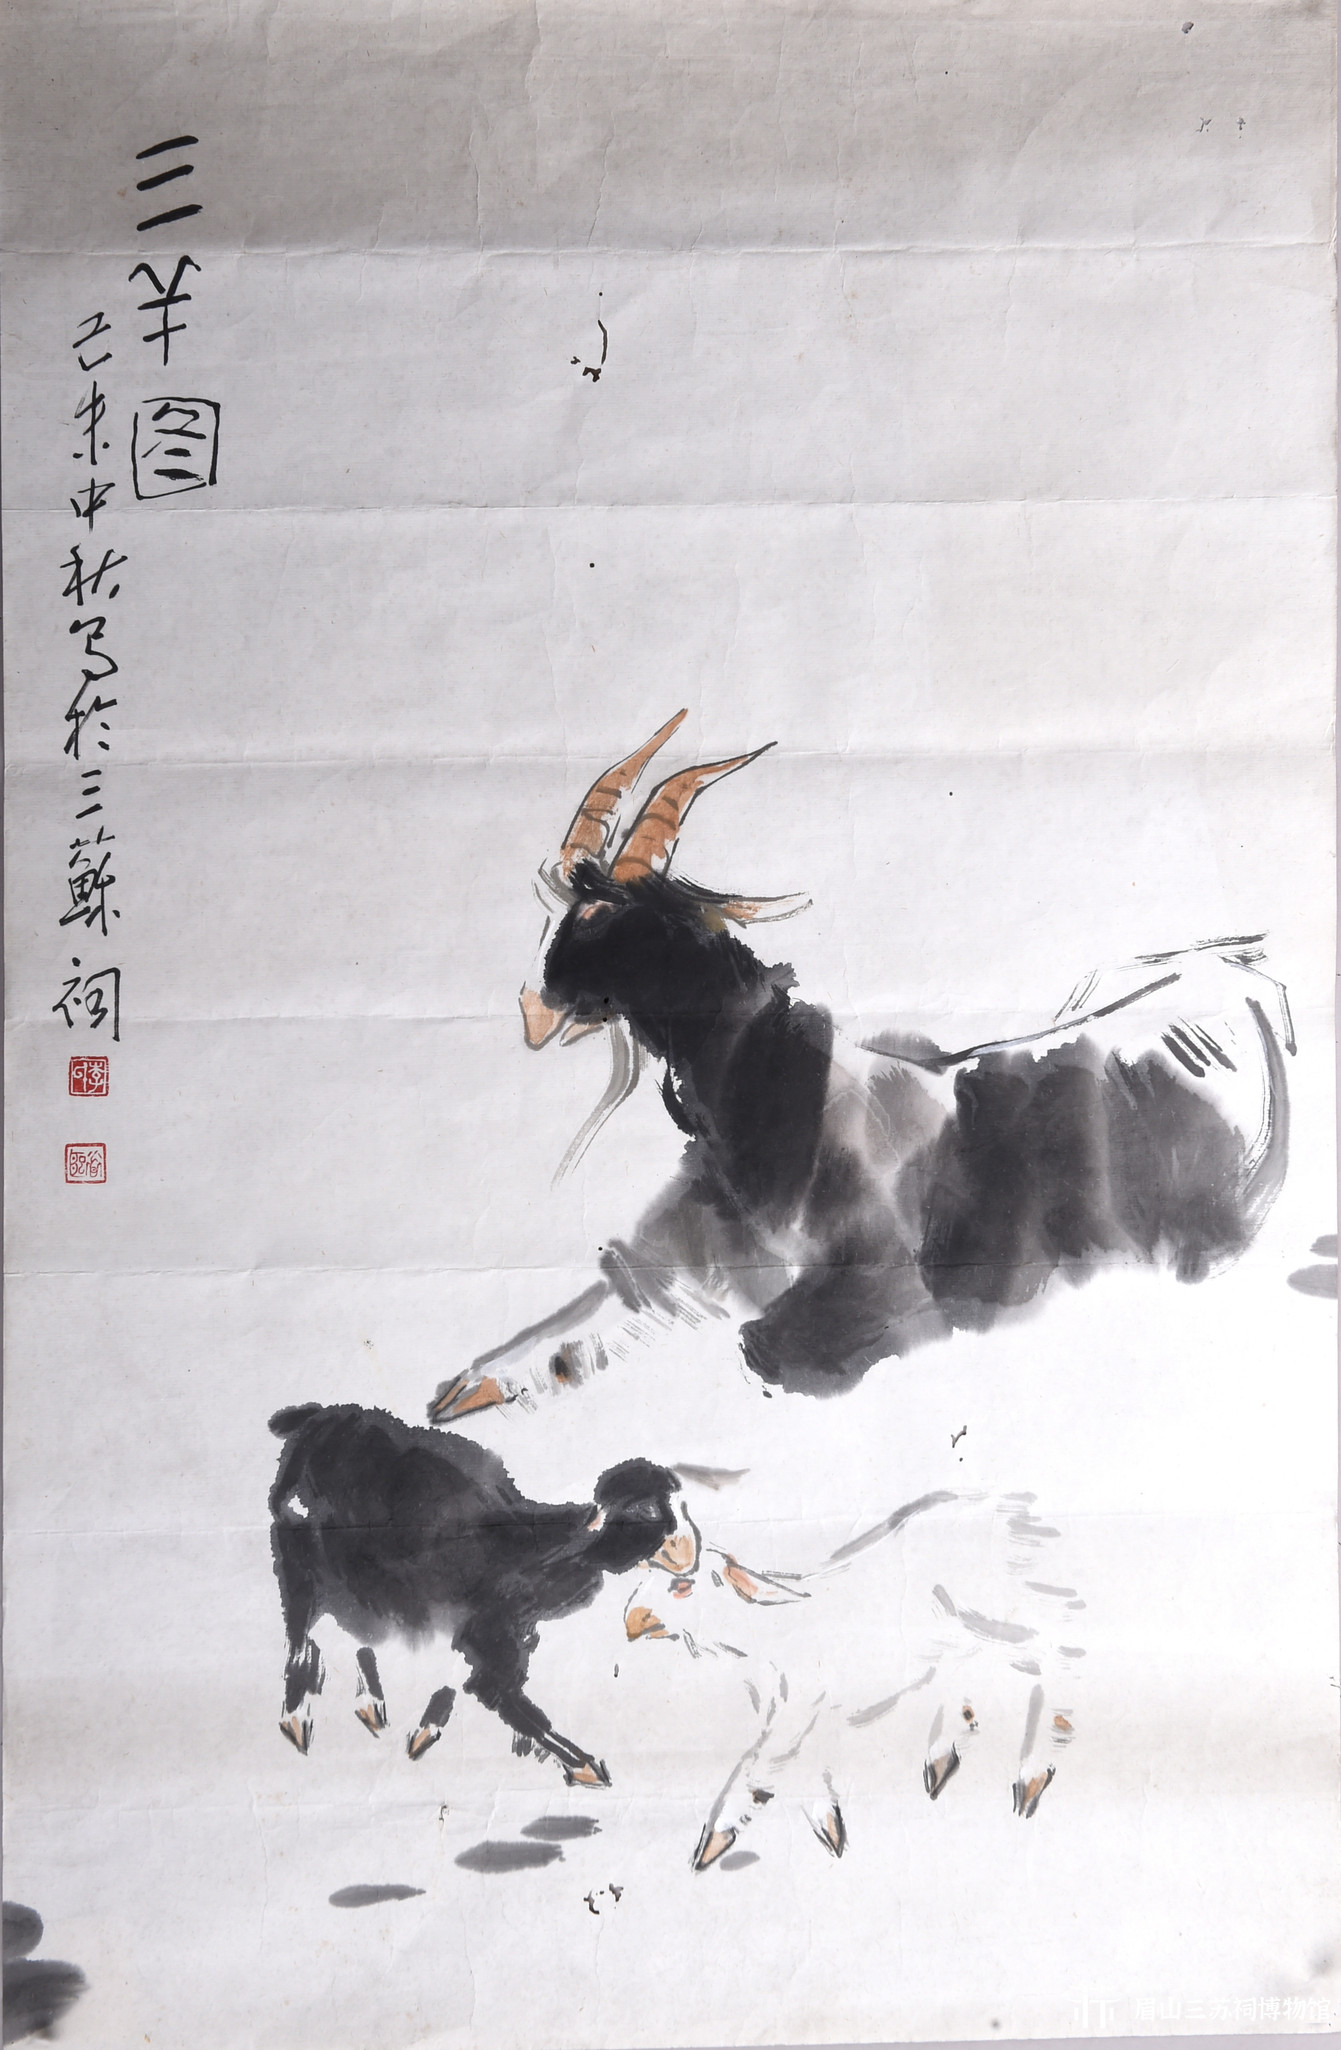 三羊图
己未中秋写於三蘇祠
眉山三苏祠博物馆